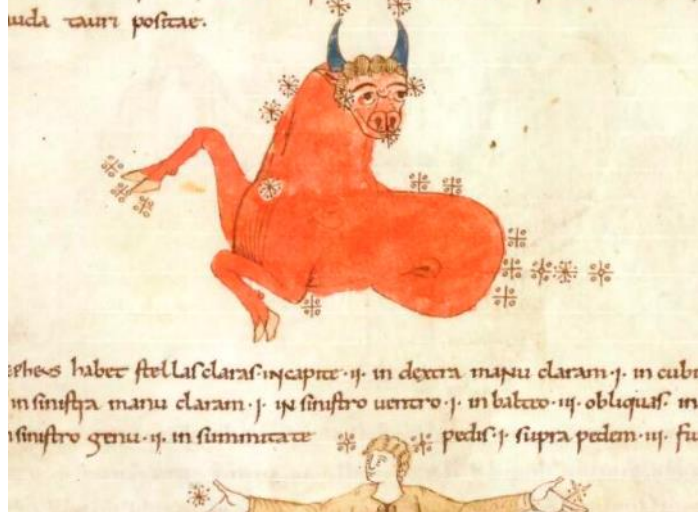 uda tauri positae.
pheus habet stellas claras in capite·ii· in dextra manu claram·i· in cubi
in sinistra manu claram·i· in sinistro uentro·i· in balteo·iii· obliquas· in
sinistro genu·ii· in summitate pedis·i· supra pedem·iii· fiu